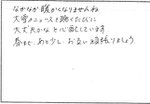 なかなか暖かくなりませんね
大雪のニュースを聴くたびに
大丈夫かなと心配しています
春まで、あと少し、お互い頑張りましょう